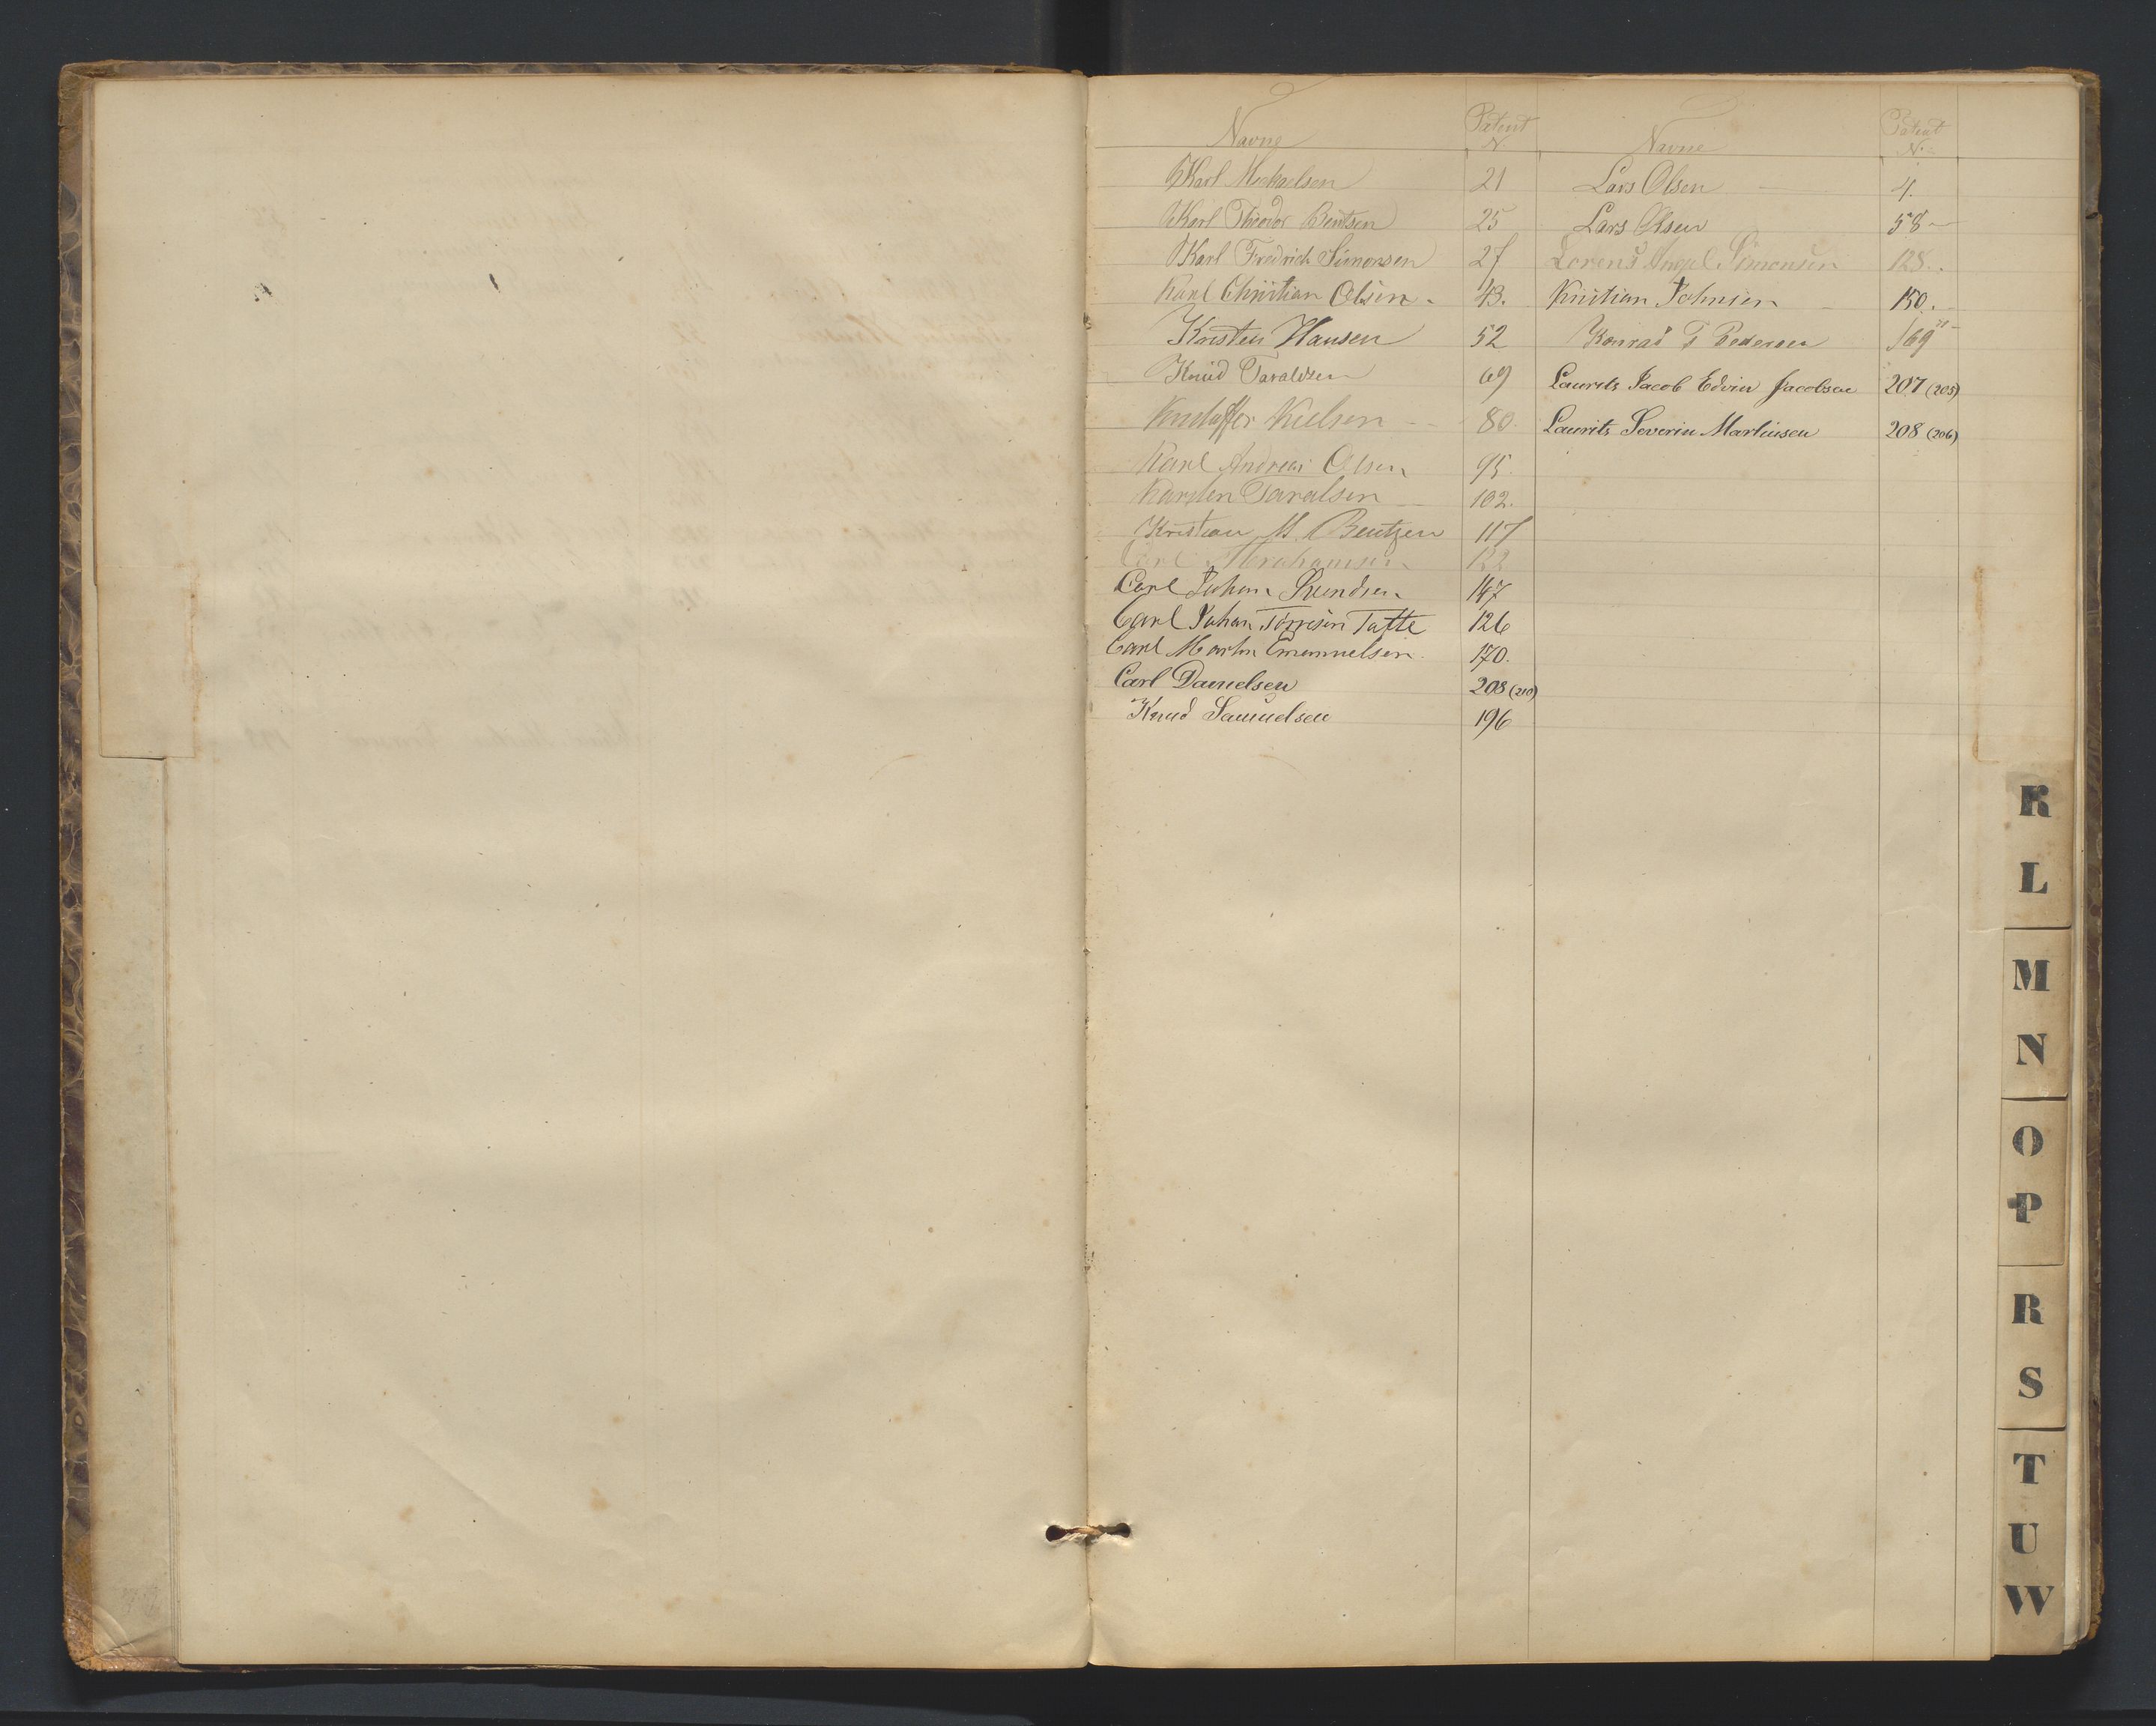 Navne Patent N
Karl Michaelsen 21
Karl Theodor Bentsen 25
Karl Fredrich Simonsen 27
Karl Christian Olsen 43.
Kristen Hansen 52
Knud Taraldsen 69
Kristoffer Nielsen 80.
Karl Andreas Olsen 95.
Karsten Taralsen 102.
Kristian M. Bentzen 117
Carl Abrahamsen 122
Carl Johan 147
Carl Johan Torrisen Tafte 126
Carl Martin Emanuelsen. 170.
Carl Danielsen 208 (210)
Knud Samuelsen 196
Navne Patent No
Lars Olsen 4.
Lars Olsen 58
Lorens Simonsen 128.
Kristian Johnsen 150.
Konrad T Pedersen 169
Laurits Jacob Edvin Jacobsen 207 (205)
Laurits Severin Martinsen 208 (206)
K
L
M
N
O
P
R
S
T
U
W